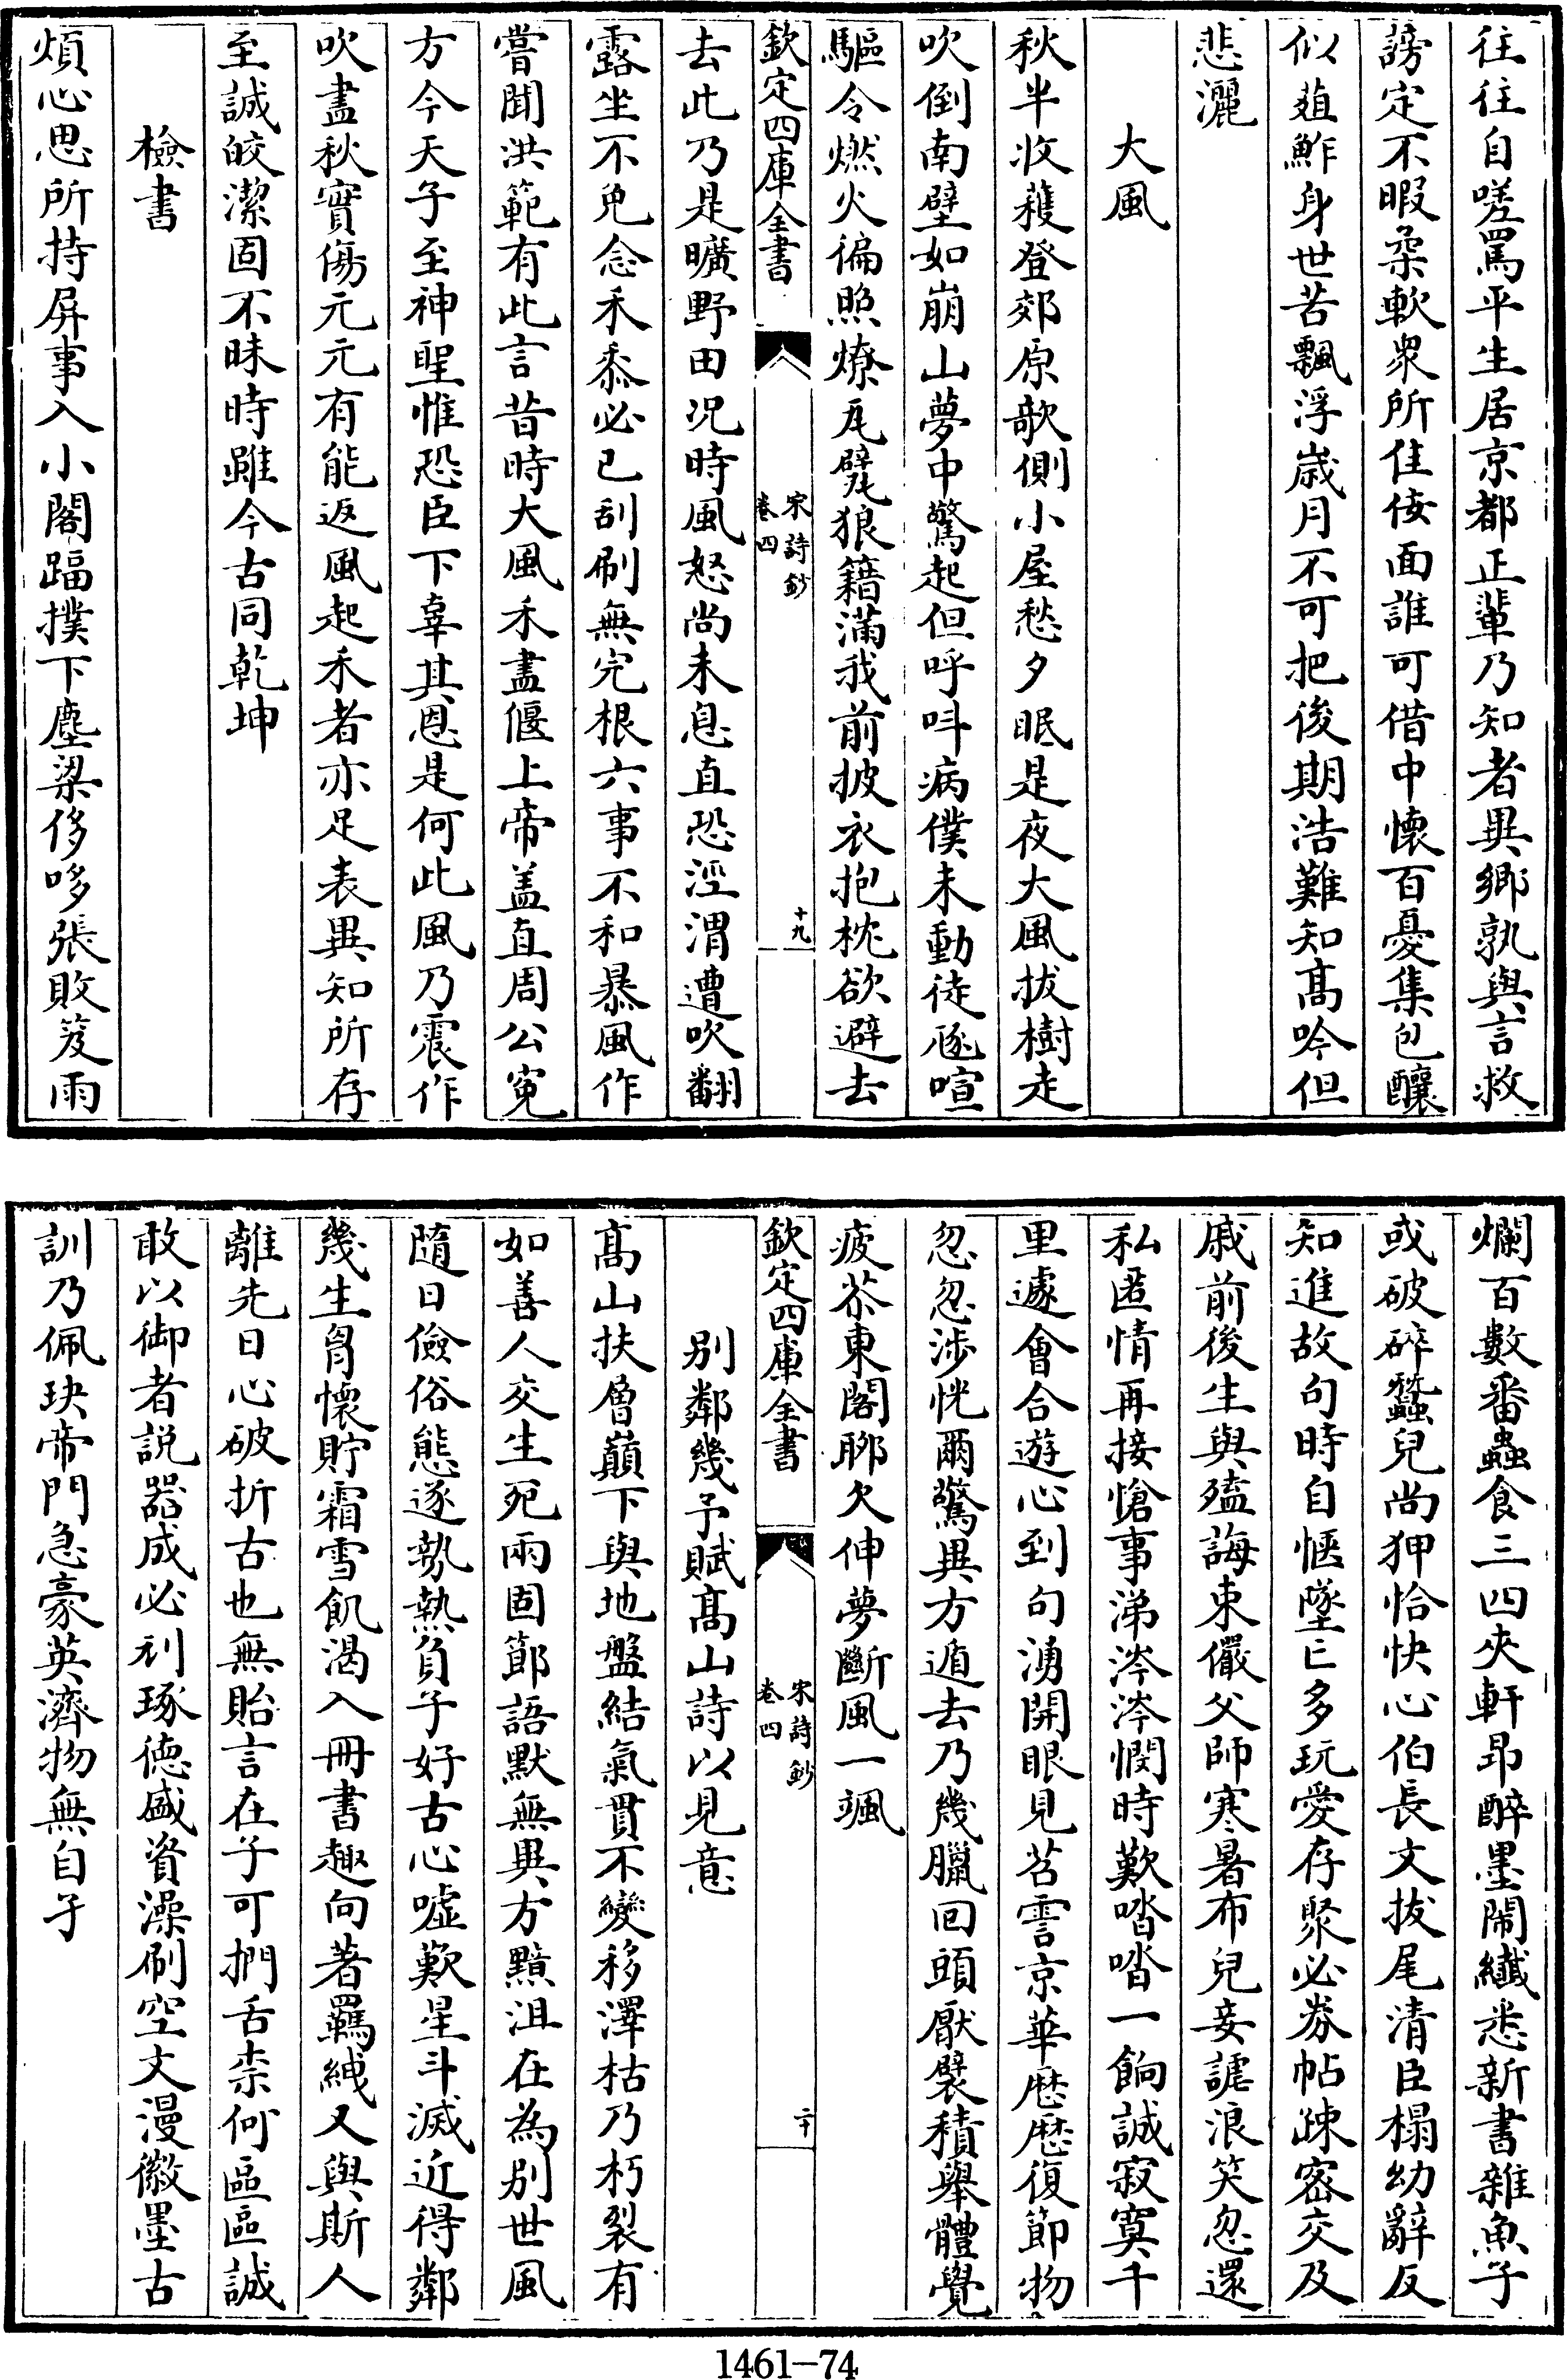 往往自嗟罵平生居京都正輩乃知者異鄉孰與言救
謗定不暇柔軟衆所佳佞面誰可借中懷百憂集包釀
似葅鮓身世苦飄浮歳月不可把後期浩難知髙吟但
悲灑
大風
秋半收穫登郊原欹側小屋愁夕眠是夜大風拔樹走
吹倒南壁如崩山夢中驚起但呼呌病僕未動徒厖喧
驅令燃火徧照燎瓦甓狼籍滿我前披衣抱枕欲避去
欽定四庫全書
宋詩鈔
卷四
十九
去此乃是曠野田况時風怒尚未息直恐涇渭遭吹翻
露坐不免念禾黍必已刮刷無完根六事不和暴風作
嘗聞洪範有此言昔時大風禾盡偃上帝盖直周公寃
方今天子至神聖惟恐臣下辜其恩是何此風乃震作
吹盡秋實傷元元有能返風起禾者亦足表異知所存
至誠皎潔固不昧時雖今古同乾坤
檢書
煩心思所持屏事入小閣踾撲下塵梁侈哆張敗笈雨
爛百數番蟲食三四夾軒昂醉墨鬧纎悉新書雜魚子
或破碎蠶兒尚狎恰快心伯長文拔尾清臣榻幼辭反
知進故句時自愜墜亡多玩愛存聚必劵帖疎密交及
戚前後生與殪誨束儼父師寒暑布兒妾謔浪笑忽還
私匿情再接愴事涕涔涔憫時歎踏踏一餉誠寂寞千
里遽會合遊心到句湧開眼見苕霅京華厯厯復節物
忽忽涉恍爾驚異方遁去乃幾臘回頭厭襞積舉體覺
疲苶東閣聊欠伸夢斷風一颯
欽定四庫全書
宋詩鈔
卷四
二十
别鄰幾予賦髙山詩以見意
髙山扶層巔下與地盤結氣貫不變移澤枯乃朽裂有
如善人交生死兩固節語默無異方黥沮在為别世風
隨日儉俗態逐勢熱負子好古心噓歎星斗滅近得鄰
幾生胷懷貯霜雪飢渴入冊書趣向著羈紲又與斯人
離先日心破折古也無貽言在子可捫舌柰何區區誠
敢以御者説器成必利琢徳盛資澡刷空文漫徽墨古
訓乃佩玦帝門急豪英濟物無自孑
1461—74